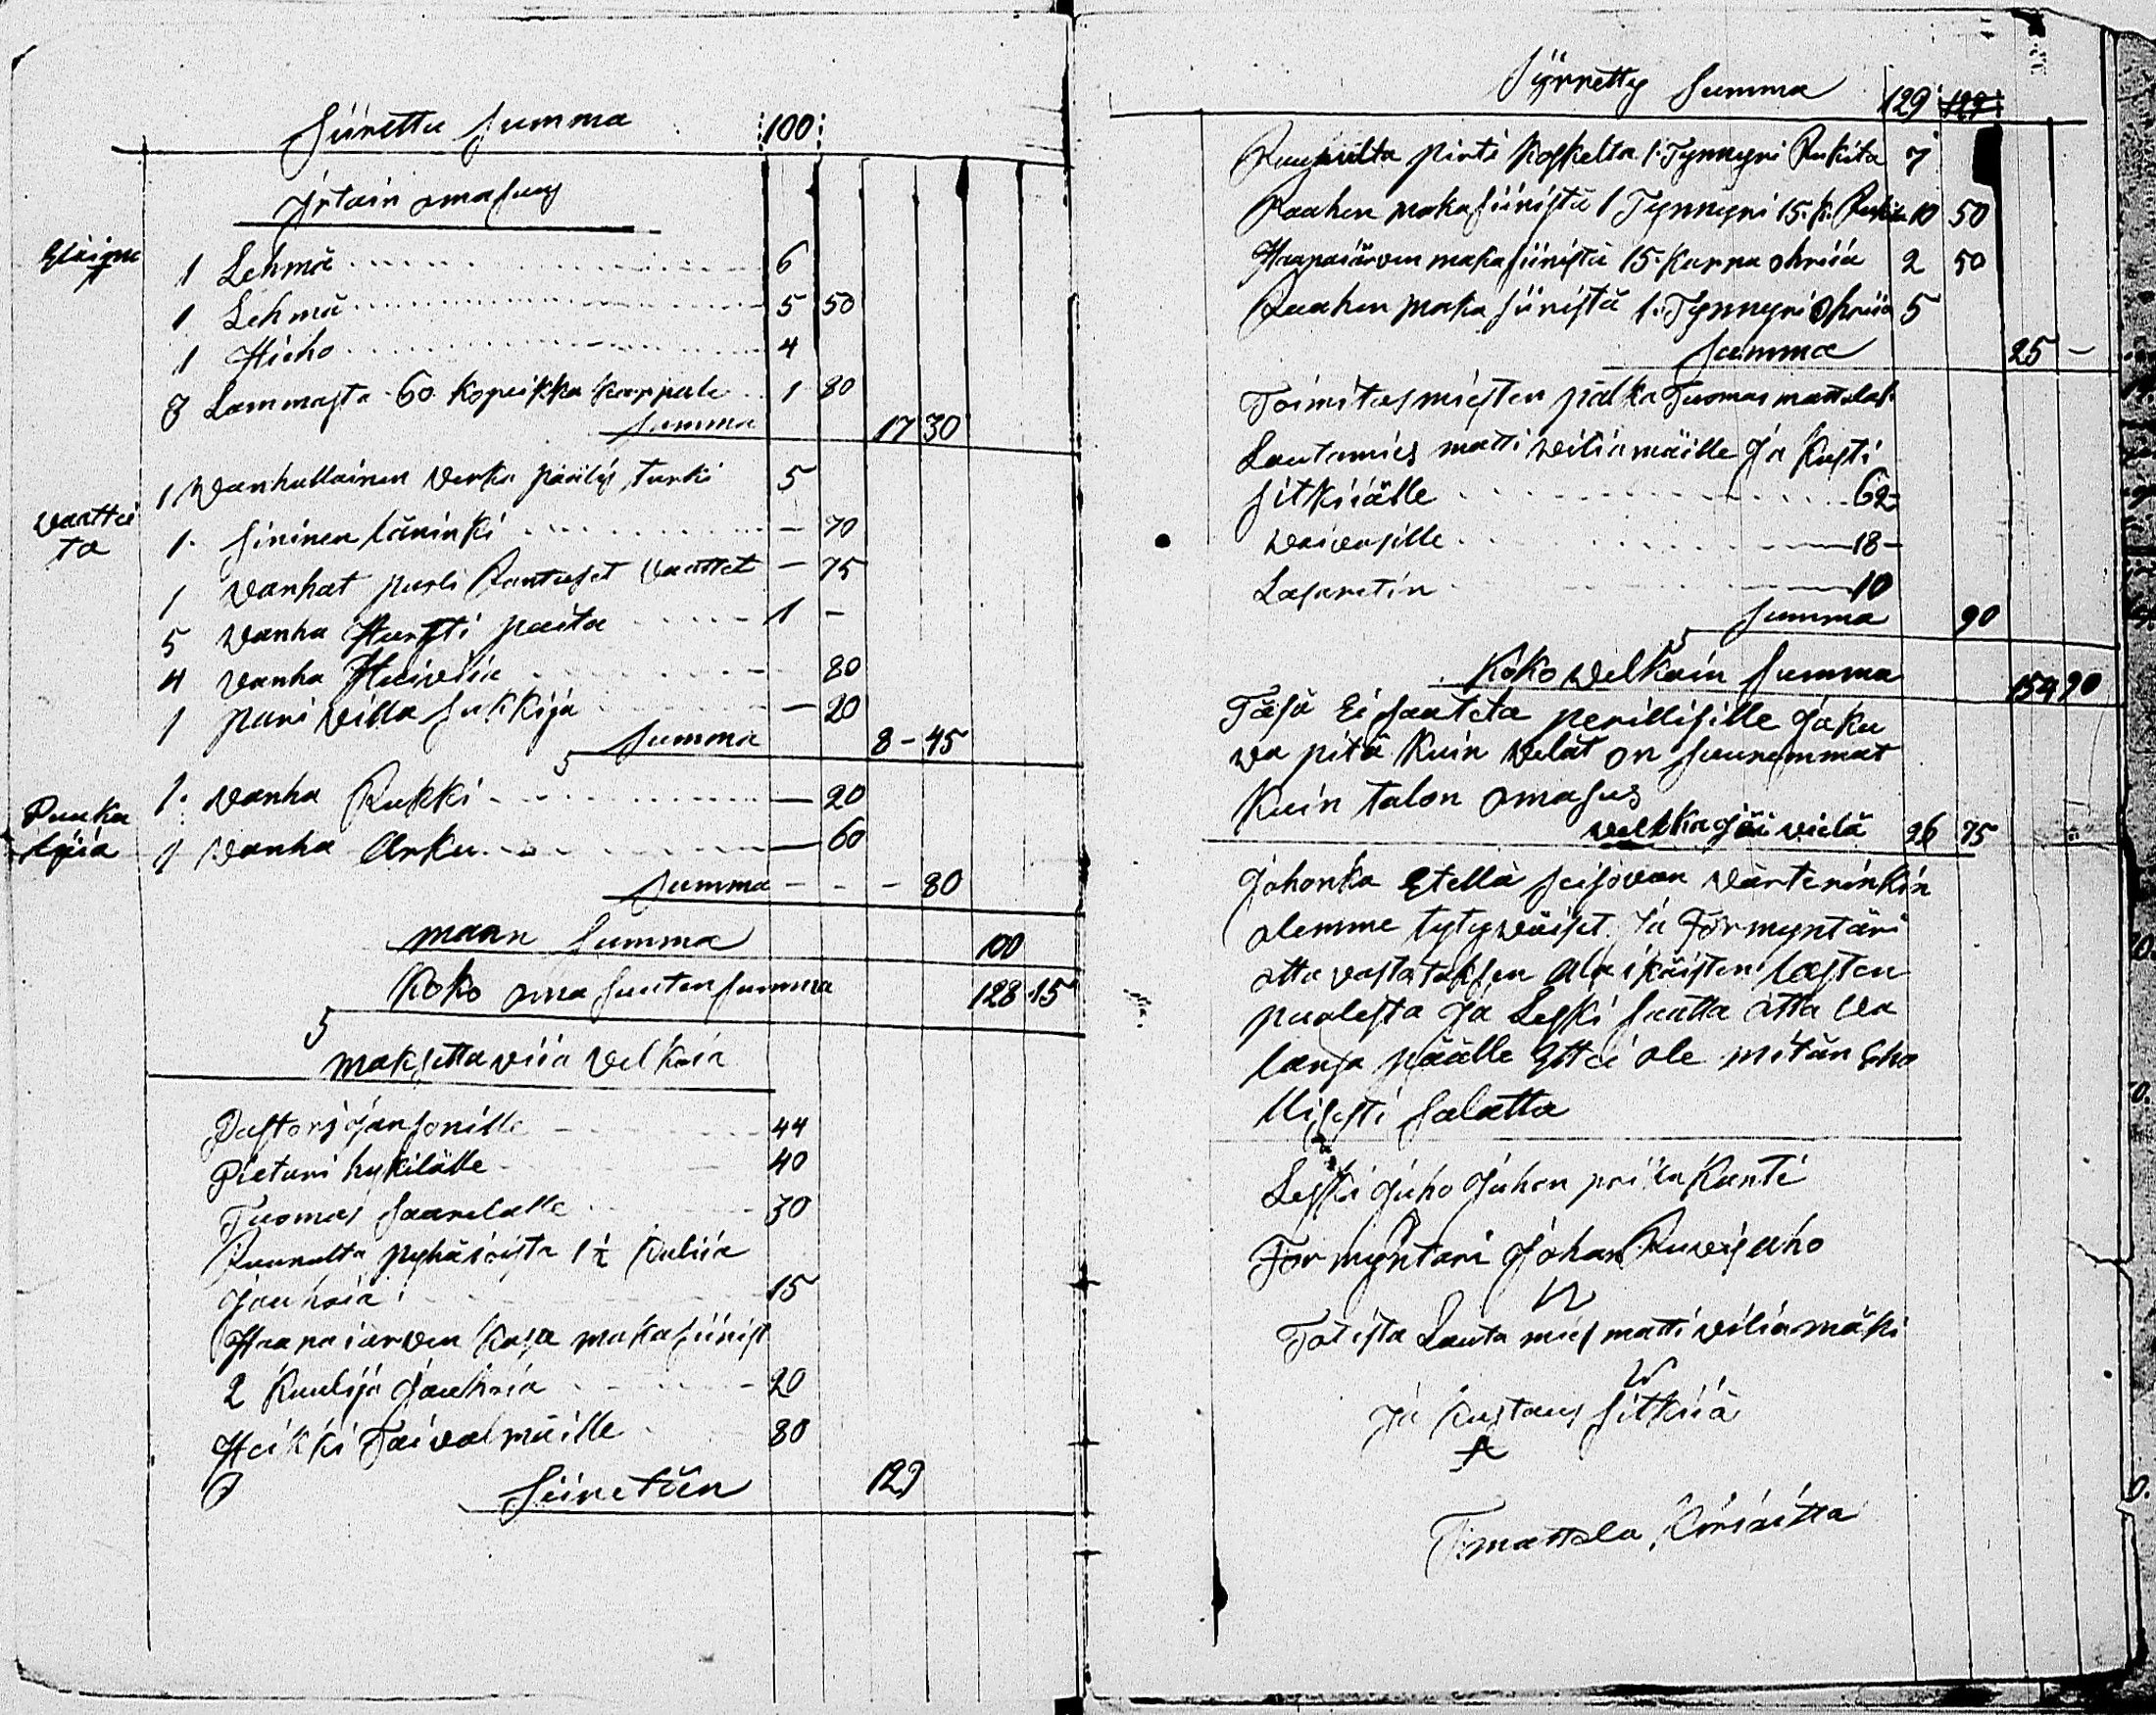 Siirettu Summa :100:
Jrtain omasus
Eläime
1 Lehmä 6
1 Lehmä 5 50
1 Hieho 4
3 Lammasta 60 kopeikka kappale 1 80
Summa 17 30
1 Wanhallainen Verka päälys turki 5
Vaattei
ta
1. Sininen läninki — 70
1 Vanhat parli Rantuset Vaattet — 75
5 Wanha Hursti paita 1 —
4 Vanha Huivia 80
1 pari Villa Sukkija — 20
Summa 8 — 45
Puuka
luja
1. Vanha Rukki — 20
1 Vanha Arku — 60
Summa — - - 80
maan Summa 100
Koko oma suuten summa 128 15
maksettaviia Velkoia
Pastori jansonille 44
Pietari hykilälle 40
Tuomas Saarelalle 30
Ruunulta pyhäioista 1½ Kuliia
Jauhoia 15
Haapaiarven Kasa makasiinist
2 Kuulija Jauhoia 20
Heikki Taivalmäille 80
Siiretäen 129
Syrretty Summa 129
Ruunulta pirti koskelta 1. Tynnyri Rukita 7
Raahen makasiinista 1 Tynnyri 15. k. Rukita 10 50
Haapaiärven makasiinista 15. Kappa ohriia 2 50
Raahen makasiinista 1. Tynnyri Ohriia 5
Summa 25 —
Toimitusmiesten palka Tuomas mattalal
Lautamies matti viliamäille Ja Kusti
Sitkiiälle 62-
Waivasille 18-
Lasaretin 10
Summa 90
Koko Velkain Summa 154 90
Täsä Ei Saateta perillisille Jaku
wa pitä Kuin Velat on Suuremmat
Kuin talon omasus
Velkka jäi vielä 26 75
Johonka Etellä seisovan Värterinkin
olemme tytyväiset Ja Formyntäri
otta vastataksen Ala ikäisten lasten
puolesta Ja Leski Saatta otta Va
lansa päälle Ettei ole mitän Eho
llisesti Salatta
Leski Juho Juhon poika Ranti
Formyntari Johan Ruusijuho
Totista Lauta mies matti viliamäki
Ja Kustaus Sitkiiä
T. mattala Kirioitta